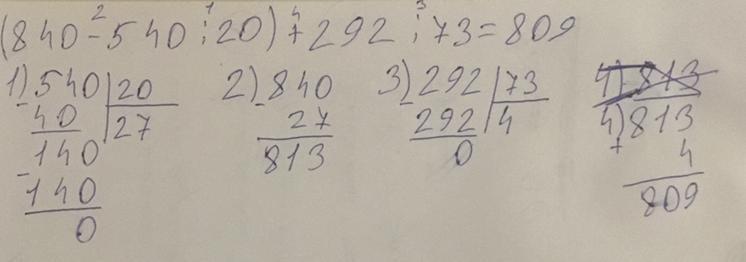 2 1 4 3
(840-540:20)+292:73=809
1) 540 | 20 2) 840 3) 292 | 73 4) 813
- 40 | 27 - 27 - 292 | 4 4) 813
140 813 0 + 4
- 140 809
0